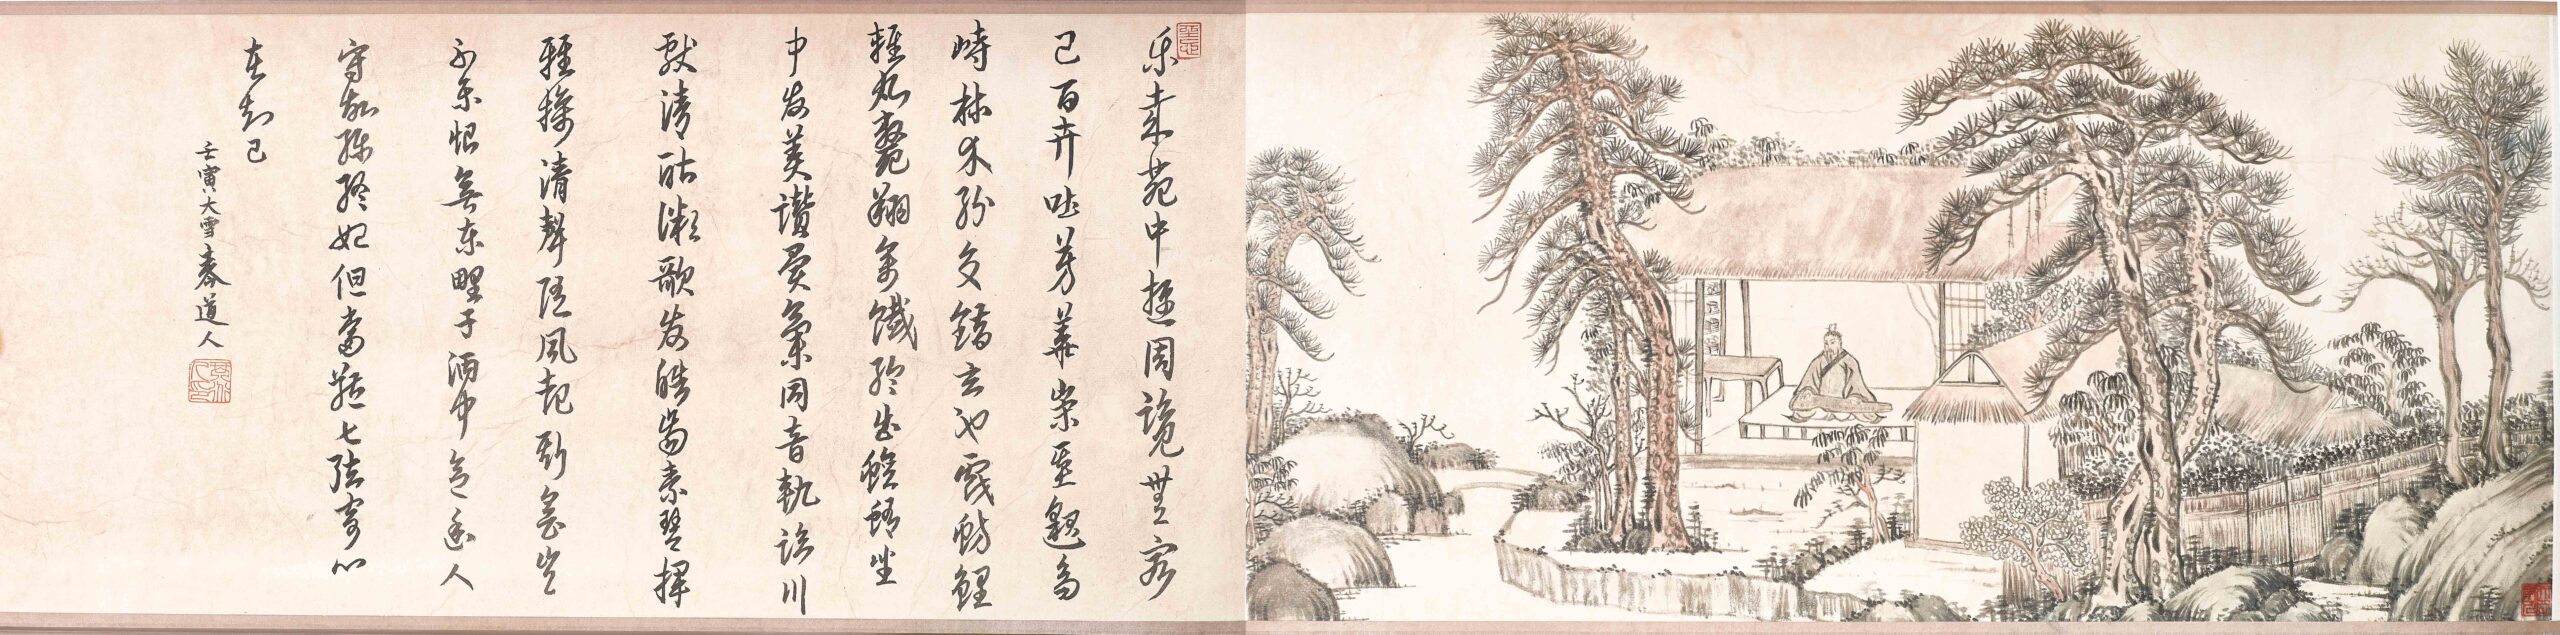 乐哉苑中遊周覽無窮
已百卉吐芳華崇臺邈高
峙林木紛交錯玄池戲魴鯉
輕丸斃翔禽纖綸出鱣鮪坐
中发美讚異氣同音軌臨川
獻清酤微歌发皓齒素琴揮
雅操清聲隨風起斯會豈
不乐恨無东野子酒中念幽人
守故彌終始但當體七弦寄心
在知己
壬寅大雪 道人